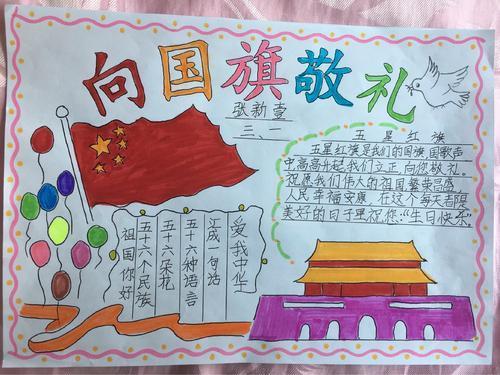 向国旗敬礼
张新壹
三、一
五星红旗
五星红旗是我们的国旗,国歌声
中高高升起,我们立正,向您敬礼。
祝愿我们伟大的祖国繁荣昌盛,
人民幸福安康,在这个每天
美好的日子里祝您:“生日快乐”
爱我中华
汇成一句话
五十六种语言
五十六朵花
五十六个民族
祖国你好